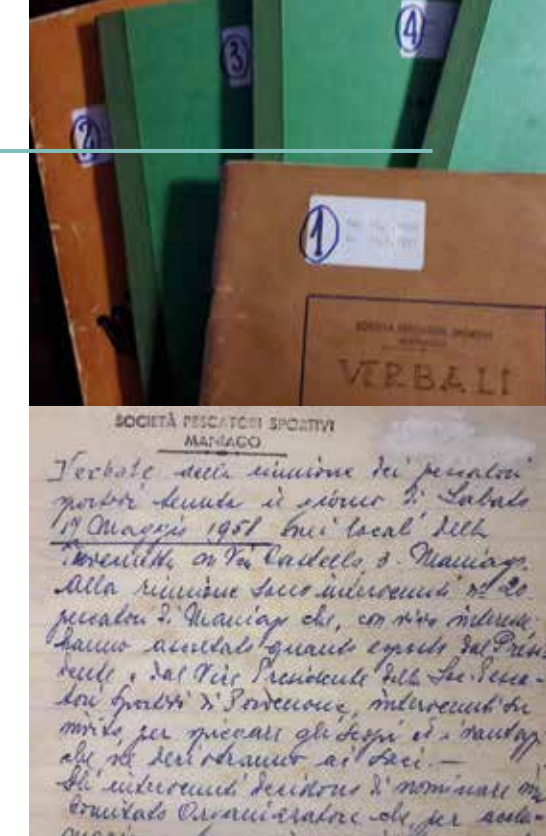 2
3
4
1
SOCIETÀ PESCATORI SPORTIVI
MANIAGO
VERBALI
SOCIETÀ PESCATORI SPORTIVI
MANIAGO
Verbale della riunione dei pescatori
sportivi tenuta il giorno di Sabato
17 Maggio 1958 nei locali della
in Via Castello, 3. Maniago.
Alla riunione sono intervenuti n. 20
pescatori di Maniago che, con vivo interesse
hanno ascoltato quanto esposto dal Presi-
dente e dal Vice Presidente della Soc. Pesca-
tori Sportivi di Pordenone, intervenuti su
invito, per spiegare gli scopi ed i vantaggi
che ne deriveranno ai soci.—
Gli intervenuti decidono di nominare un
Comitato Organizzatore che, per accla-